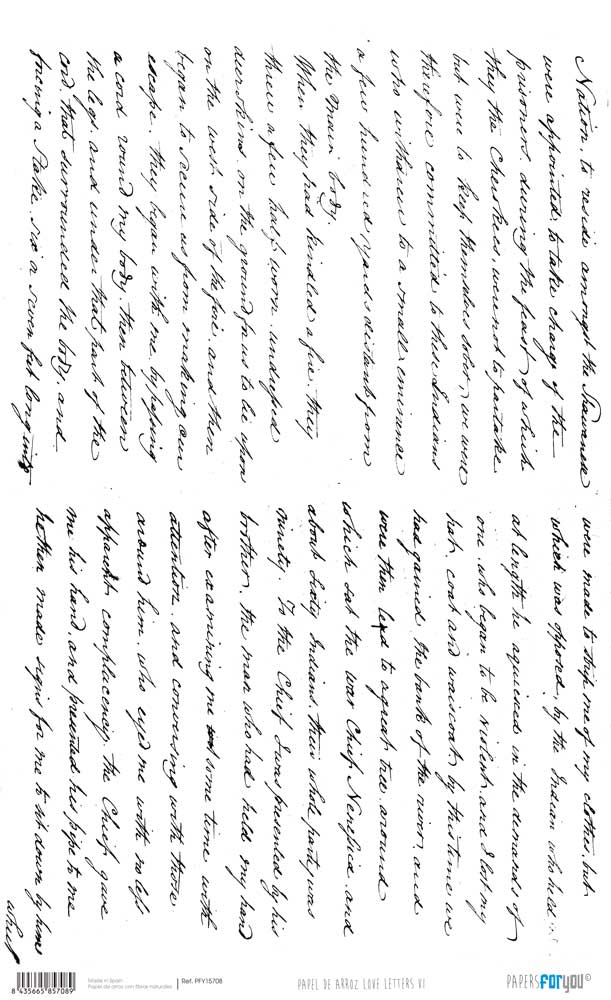 Nation to reside amongst the Shawanese
were appointed to take charge of the
prisoners during the feast, of which
they the Cherokees, were not to partake
but were to keep themselves sober, we were
therefore committed to these Indians
who withdrew to a small eminence
a few hundred yards distant from
the main body.
When they had kindled a fire, they
threw a few half worn undressed
deerskins on the ground for us to lie upon
on the west side of the fire, and then
began to secure us from making our
escape. they began with me, by passing
a cord round my body, then between
the legs and under that part of the
cord that surrounded the body, and
having a stake six or seven feet long
were made to strip me of my clothes, but
which was opposed, by the Indian who held
at length he acquiesced in the demands of
one who began to be violent and I lost my
hat, coat and waistcoat, by this time we
had gained the bank of the river, and
were then led to a great tree around
which sat the war Chief and
about Sixty Indians, their whole party was
ninety. To the Chief I was presented by his
brother, the man who had held my hand
after examining me some time with
attention and conversing with those
around him, who eyed me with no less
apparent complacency. the Chief gave
me his hand, and presented his pipe to me
he then made signs for me to sit down by him
8 435665 857089
Made in Spain
Papel de arroz con fibras naturales
Ref. PFY15708
PAPEL DE ARROZ LOVE LETTERS VI
PAPERSFORYOU©